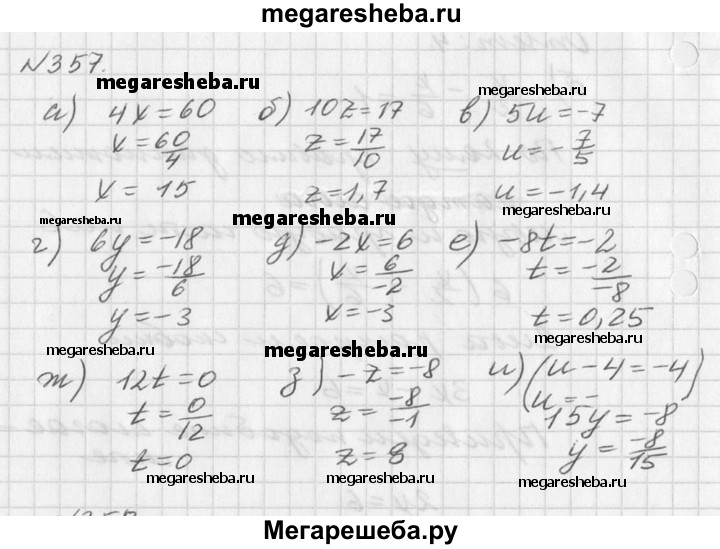 megaresheba.ru
№357.
megaresheba.ru
megaresheba.ru
а) 4x=60 б) 10z=17 в) 5u=-7
x=60/4 z=17/10 u=-7/5
x= 15 z=1,7 u=-1,4
megaresheba.ru megaresheba.ru megaresheba.ru
г) 6y=-18 д) -2x=6 е) -8t=-2
y=-18/6 x=6/-2 t=-2/-8
y=-3 x=-3 t=0,25
megaresheba.ru megaresheba.ru megaresheba.ru
ж) 12t=0 з) -z=-8 и) (u-4=-4)
(u=-
t=0/12 z=-8/-1 15y=-8
t=0 z=8 y=-8/15
megaresheba.ru megaresheba.ru megaresheba.ru
Мегарешеба.ру